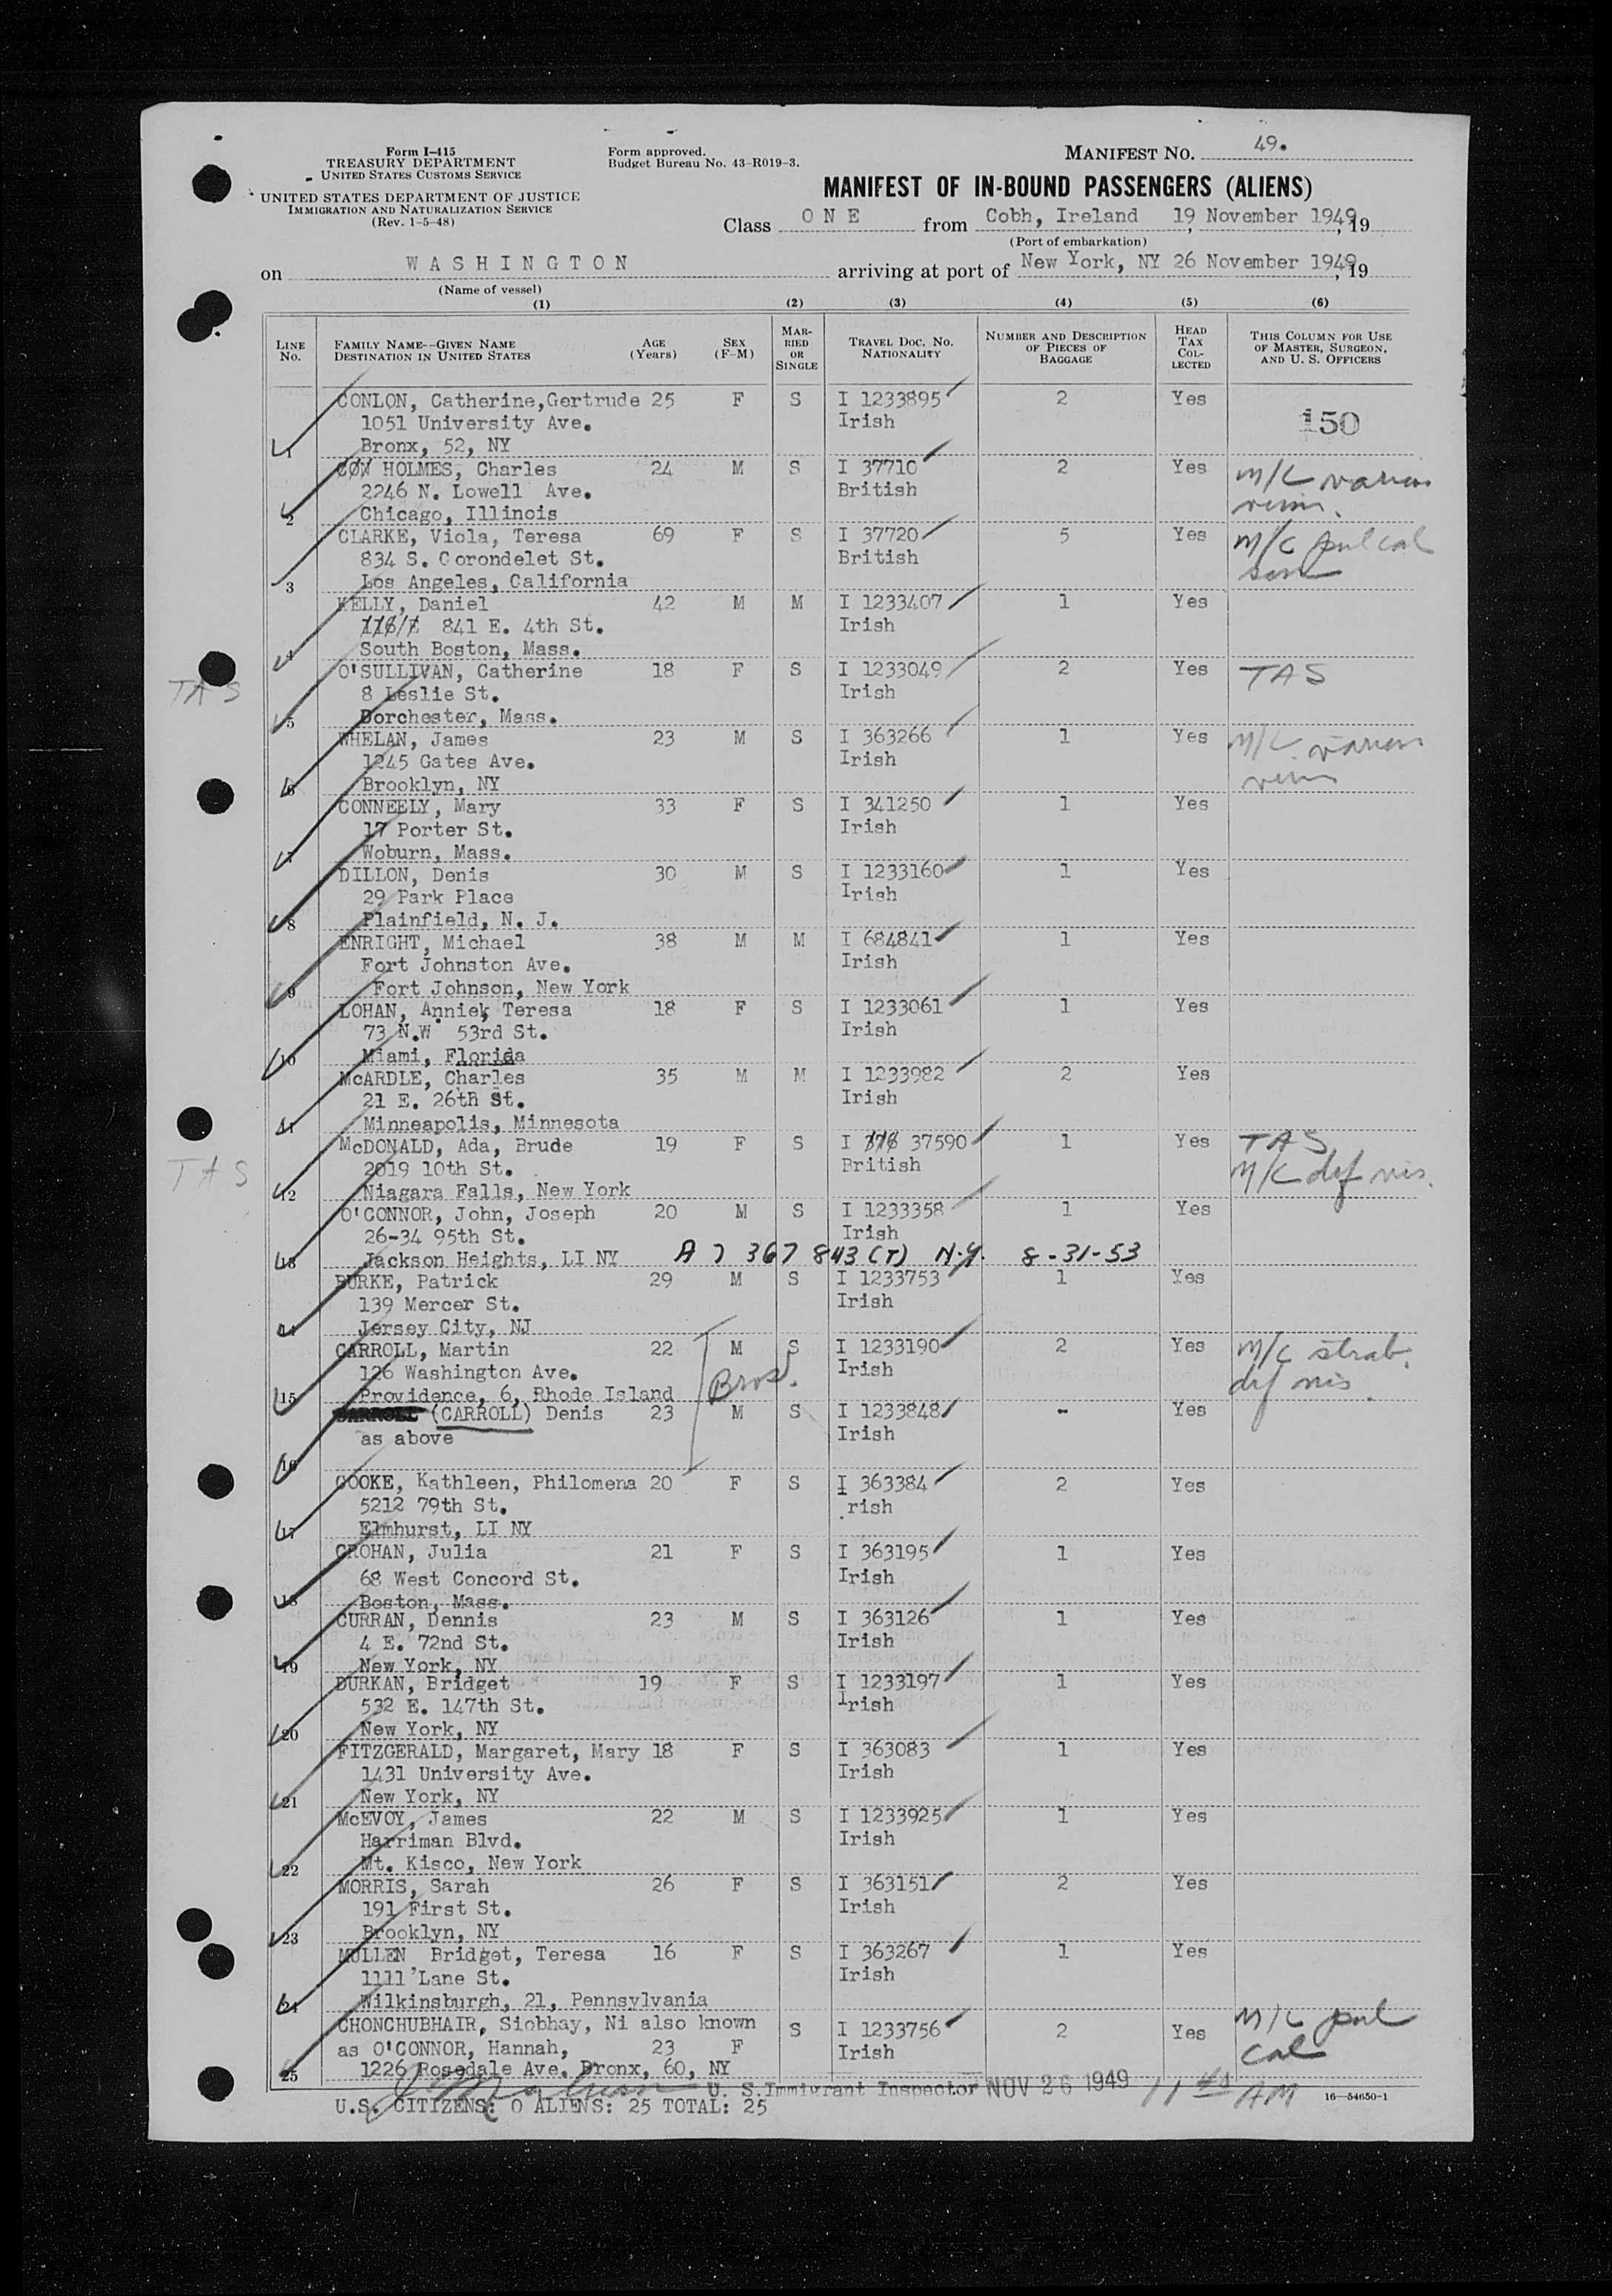 Form I-415
TREASURY DEPARTMENT
UNITED STATES CUSTOMS SERVICE
UNITED STATES DEPARTMENT OF JUSTICE
IMMIGRATION AND NATURALIZATION SERVICE
(Rev. 1-5-48)
Form approved.
Budget Bureau No. 43-R019-3.
MANIFEST NO. 49.
MANIFEST OF IN-BOUND PASSENGERS (ALIENS)
Class ONE from Cobh, Ireland 19 November 1949, 19
(Port of embarkation)
on WASHINGTON arriving at port of New York, NY 26 November 1949, 19
(Name of vessel)
(1) (2) (3) (4) (5) (6)
LINE No. FAMILY NAME--GIVEN NAME DESTINATION IN UNITED STATES AGE (Years) SEX (F-M) MARRIED OR SINGLE TRAVEL DOC. NO. NATIONALITY NUMBER AND DESCRIPTION OF PIECES OF BAGGAGE HEAD TAX COLLECTED THIS COLUMN FOR USE OF MASTER, SURGEON, AND U. S. OFFICERS
CONLON, Catherine,Gertrude 25 F S I 1233895 2 Yes
1051 University Ave. Irish 150
1 Bronx, 52, NY
HOLMES, Charles 24 M S I 37710 2 Yes M/C
2246 N. Lowell Ave. British
2 Chicago, Illinois
CLARKE, Viola, Teresa 69 F S I 37720 5 Yes M/C pul cal
834 S. Corondelet St. British
3 Los Angeles, California
KELLY, Daniel 42 M M I 1233407 1 Yes
841 E. 4th St. Irish
4 South Boston, Mass.
O'SULLIVAN, Catherine 18 F S I 1233049 2 Yes TAS
TAS 8 Leslie St. Irish
5 Dorchester, Mass.
WHELAN, James 23 M S I 363266 1 Yes M/C
1245 Gates Ave. Irish
6 Brooklyn, NY
CONNEELY, Mary 33 F S I 341250 1 Yes
17 Porter St. Irish
7 Woburn, Mass.
DILLON, Denis 30 M S I 1233160 1 Yes
29 Park Place Irish
8 Plainfield, N. J.
ENRIGHT, Michael 38 M M I 684841 1 Yes
Fort Johnston Ave. Irish
9 Fort Johnson, New York
LOHAN, Annie, Teresa 18 F S I 1233061 1 Yes
73 N.W. 53rd St. Irish
10 Miami, Florida
McARDLE, Charles 35 M M I 1233982 2 Yes
21 E. 26th St. Irish
11 Minneapolis, Minnesota
McDONALD, Ada, Brude 19 F S I 37590 1 Yes TAS
TAS 2019 10th St. British M/C def vis.
12 Niagara Falls, New York
O'CONNOR, John, Joseph 20 M S I 1233358 1 Yes
26-34 95th St. Irish
13 Jackson Heights, LI NY A 7 367 843 (T) N.Y. 8-31-53
BURKE, Patrick 29 M S I 1233753 1 Yes
139 Mercer St. Irish
14 Jersey City, NJ
CARROLL, Martin 22 M S I 1233190 2 Yes M/C strab.
126 Washington Ave. Bros. Irish def vis.
15 Providence, 6, Rhode Island
(CARROLL) Denis 23 M S I 1233848 - Yes
as above Irish
16
COOKE, Kathleen, Philomena 20 F S I 363384 2 Yes
5212 79th St. rish
17 Elmhurst, LI NY
CROHAN, Julia 21 F S I 363195 1 Yes
68 West Concord St. Irish
18 Boston, Mass.
CURRAN, Dennis 23 M S I 363126 1 Yes
4 E. 72nd St. Irish
19 New York, NY
DURKAN, Bridget 19 F S I 1233197 1 Yes
532 E. 147th St. Irish
20 New York, NY
FITZGERALD, Margaret, Mary 18 F S I 363083 1 Yes
1431 University Ave. Irish
21 New York, NY
McEVOY, James 22 M S I 1233925 1 Yes
Harriman Blvd. Irish
22 Mt. Kisco, New York
MORRIS, Sarah 26 F S I 363151 2 Yes
191 First St. Irish
23 Brooklyn, NY
MULLEN, Bridget, Teresa 16 F S I 363267 1 Yes
1111 Lane St. Irish
24 Wilkinsburgh, 21, Pennsylvania
CHONCHUBHAIR, Siobhay, Ni also known S I 1233756 2 Yes M/C pul
as O'CONNOR, Hannah, 23 F Irish cal
25 1226 Rosedale Ave. Bronx, 60, NY
U. S. Immigrant Inspector NOV 26 1949 11 40 AM 16-54650-1
U.S. CITIZENS: 0 ALIENS: 25 TOTAL: 25